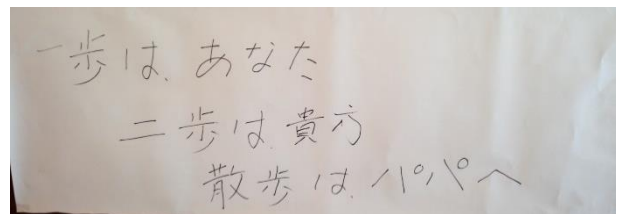 一歩は、あなた
二歩は、貴方
散歩は、パパへ